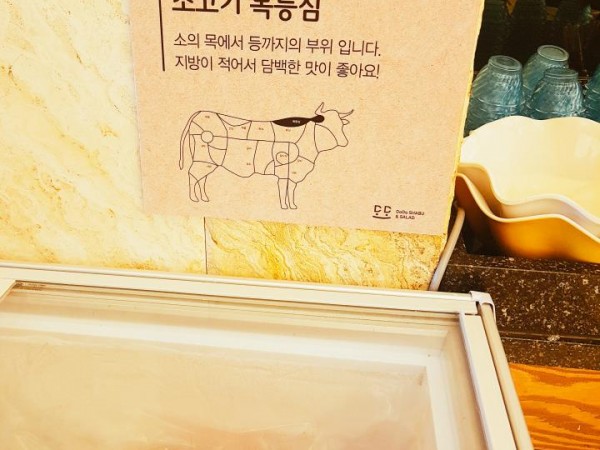 소고기 목등심
소의 목에서 등까지의 부위 입니다.
지방이 적어서 담백한 맛이 좋아요!
DoDu SHABU
& SALAD